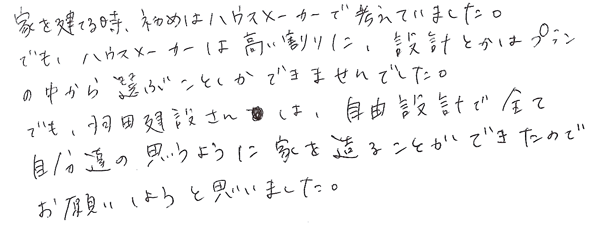 家を建てる時、初めはハウスメーカーで考えていました。
でも、ハウスメーカーは高い割りに、設計とかはプラン
の中から選ぶことしかできませんでした。
でも、羽田建設さんは、自由設計で全て
自分達の思うように家を造ることができたので
お願いしようと思いました。